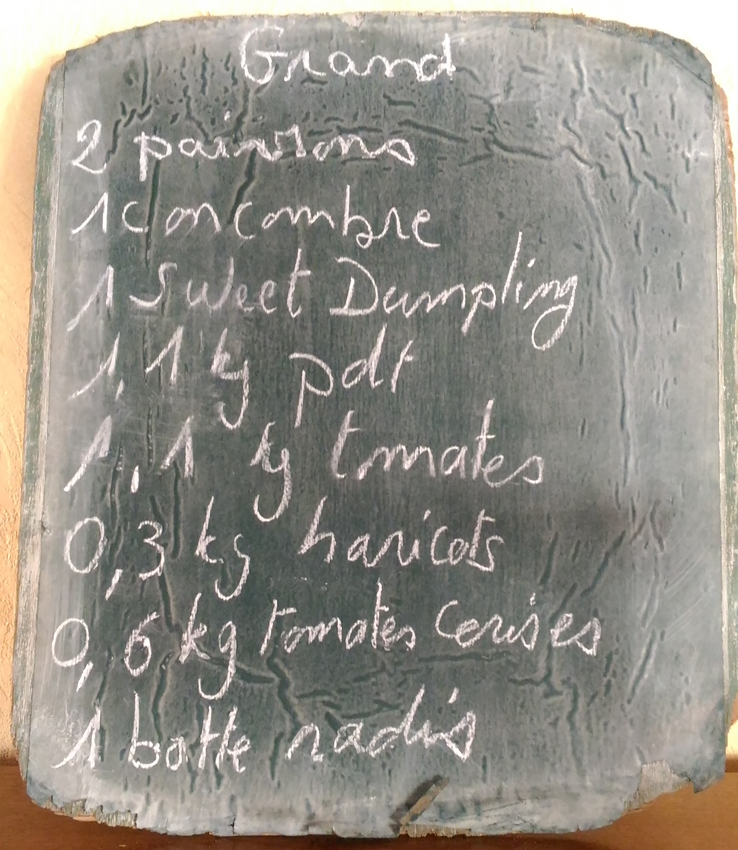 Grand
2 poivrons
1 concombre
1 Sweet Dumpling
1,1 kg pdt
1,1 kg tomates
0,3 kg haricots
0,6 kg tomates cerises
1 botte radis